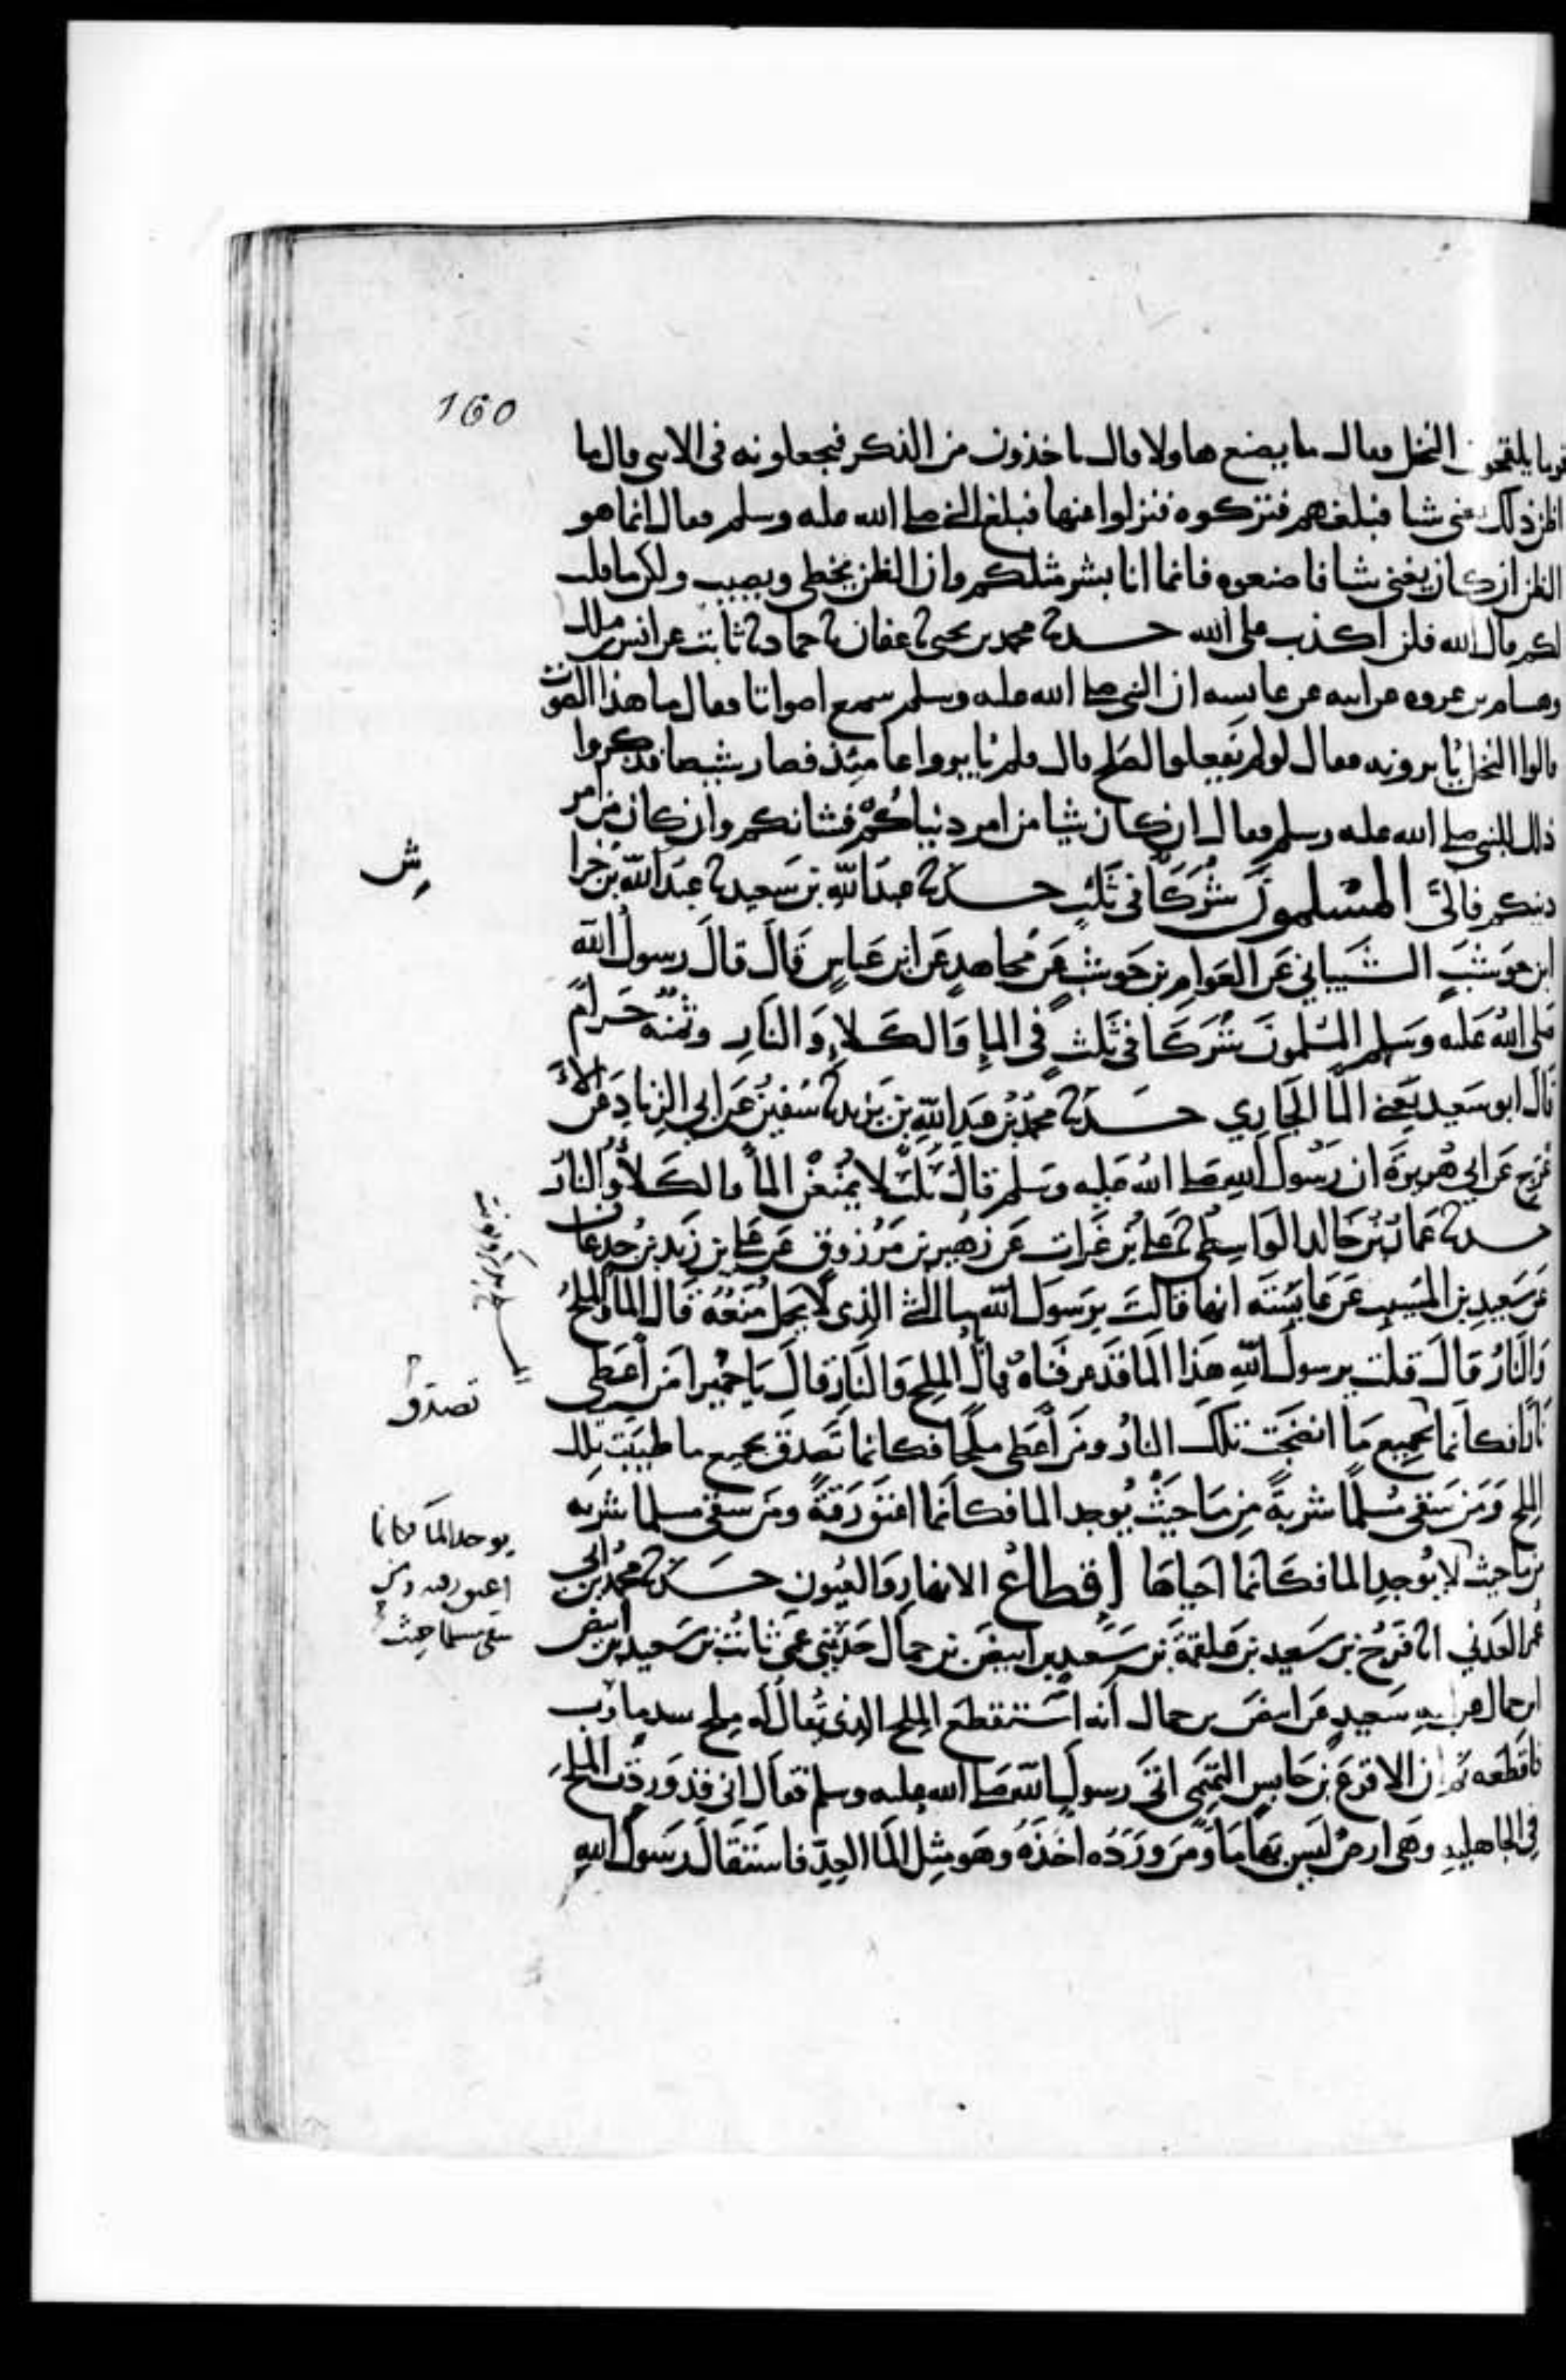 160
قوما يلقحون النخل فقال ما يصنع هاولا قال ياخذون من الذكر فيجعلونه في الانثى قال ما
اظن ذلك يغني شيا فبلغهم فتركوه فنزلوا عنها فبلغ النبي صلى الله عليه وسلم فقال انما هو
الظن ان كان يغني شيا فاصنعوه فانما انا بشر مثلكم وان الظن يخطي ويصيب ولكن ما قلت
لكم قال الله فلن اكذب على الله حدثنا محمد بن يحيى ثنا عفان ثنا حماد ثنا ثابت عن انس بن ملك
وهشام بن عروه عن ابيه عن عايشه ان النبي صلى الله عليه وسلم سمع اصواتا فقال ما هذا الصوت
قالوا النخل يابرونه فقال لو لم يفعلوا لصلح قال فلم يابروا عامئذ فصار شيصا فذكروا
ذلك للنبي صلى الله عليه وسلم فقال ان كان شيا من امر دنياكم فشانكم وان كان من امر
دينكم فالى المسلمون شركا في ثلث حدثنا عبد الله بن سعيد ثنا عبد الله بن خرا
ش
ابن حوشب الشيباني عن العوام بن حوشب عن مجاهد عن ابن عباس قال قال رسول الله
صلى الله عليه وسلم المسلمون شركا في ثلث في الما والكلا والنار وثمنه حرام
قال ابو سعيد يعني الما الجاري حدثنا محمد بن عبد الله بن يزيد ثنا سفين عن ابي الزناد عن الا
عرج عن ابي هريرة ان رسول الله صلى الله عليه وسلم قال ثلث لا يمنعن الما والكلا والنار
حدثنا عمار بن خالد الواسطي ثنا علي بن غراب عن زهير بن مرزوق عن علي بن زيد بن جدعان
عن سعيد بن المسيب عن عايشة انها قالت يرسول الله ما الشي الذي لا يحل منعه قال الما والملح
والنار قال قلت يرسول الله هذا الما قد عرفناه فما بال الملح والنار قال يا حميرا من اعطى
نارا فكانما بجميع ما انضجت تلك النار ومن اعطى ملحا فكانما تصدق بجميع ما طيبت تلك
تصدق
الملح ومن سقى مسلما شربة من ما حيث يوجد الما فكانما اعتق رقبة ومن سقى مسلما شربه
يوجد الما فكانما
اعتق رقبه ومن
سقى مسلما حيث
من ما حيث لا يوجد الما فكانما احياها اقطاع الانهار والعيون حدثنا محمد بن ابي
عمر العدني انا فرج بن سعيد بن علقمة بن سعيد بن ابيض بن حمال حدثني عمي ثابت بن سعيد بن ابيض
ابن حمال عن ابيه سعيد عن ابيض بن حمال انه استقطع الملح الذي يقال له ملح سد مارب
فاقطعه ثم ان الاقرع بن حابس التميمي اتى رسول الله صلى الله عليه وسلم فقال اني قد وردت الملح
في الجاهلية وهي ارض ليس بها ما ومن ورده اخذه وهو مثل الما العد فاستقال رسول الله